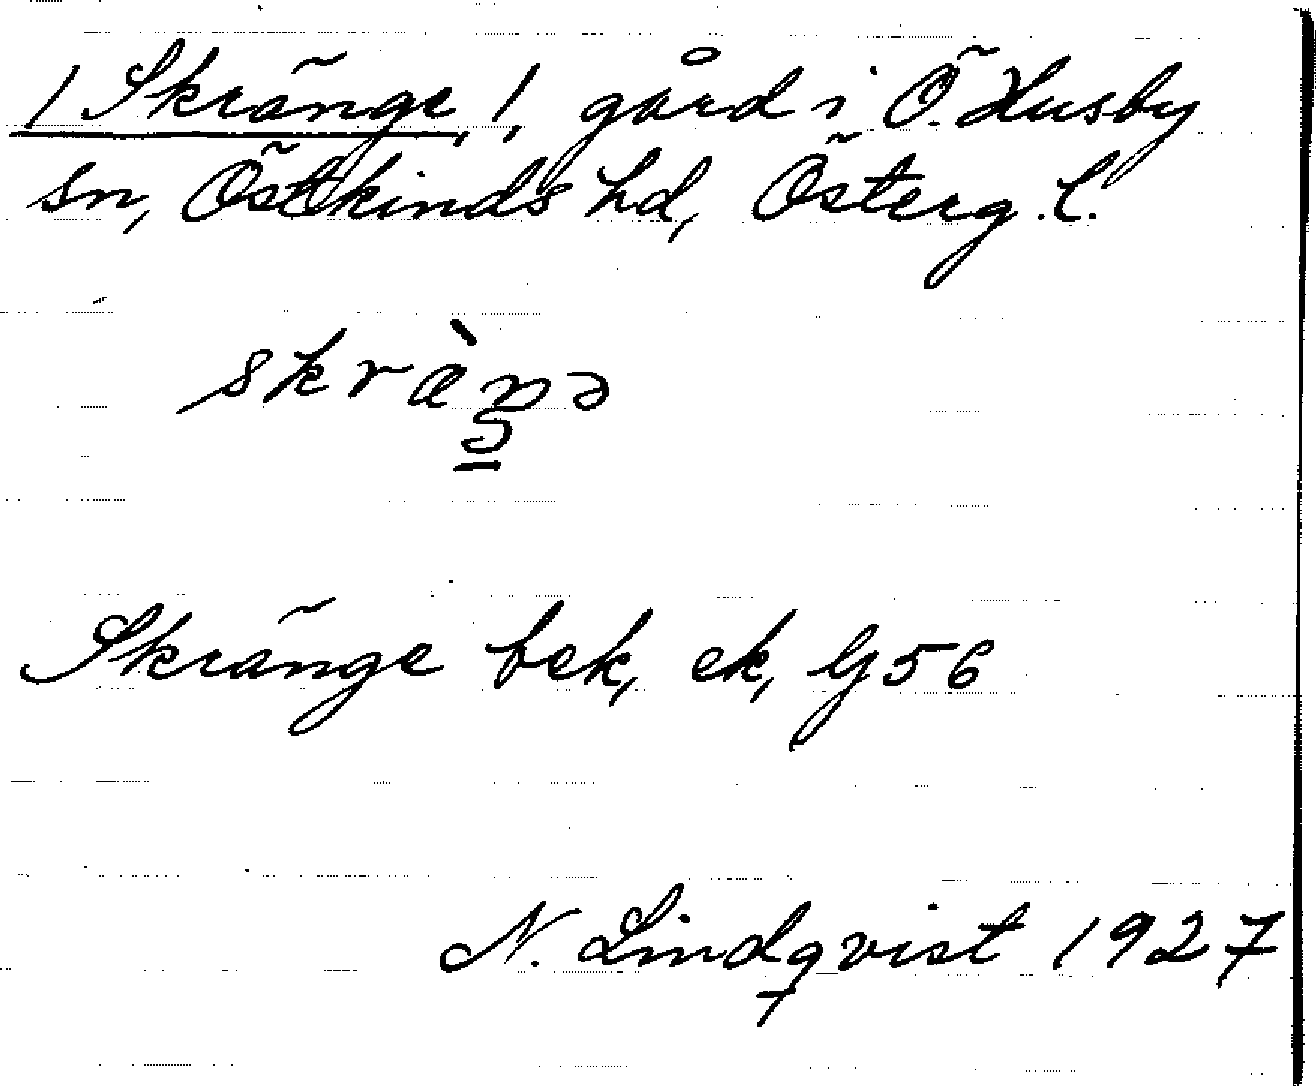 /Skränge,/, gård i Ö. Husby
sn, Östkinds hd, Österg. l.
skræ̀ŋə
Skränge bek, ek, Gj 56
N. Lindqvist 1927